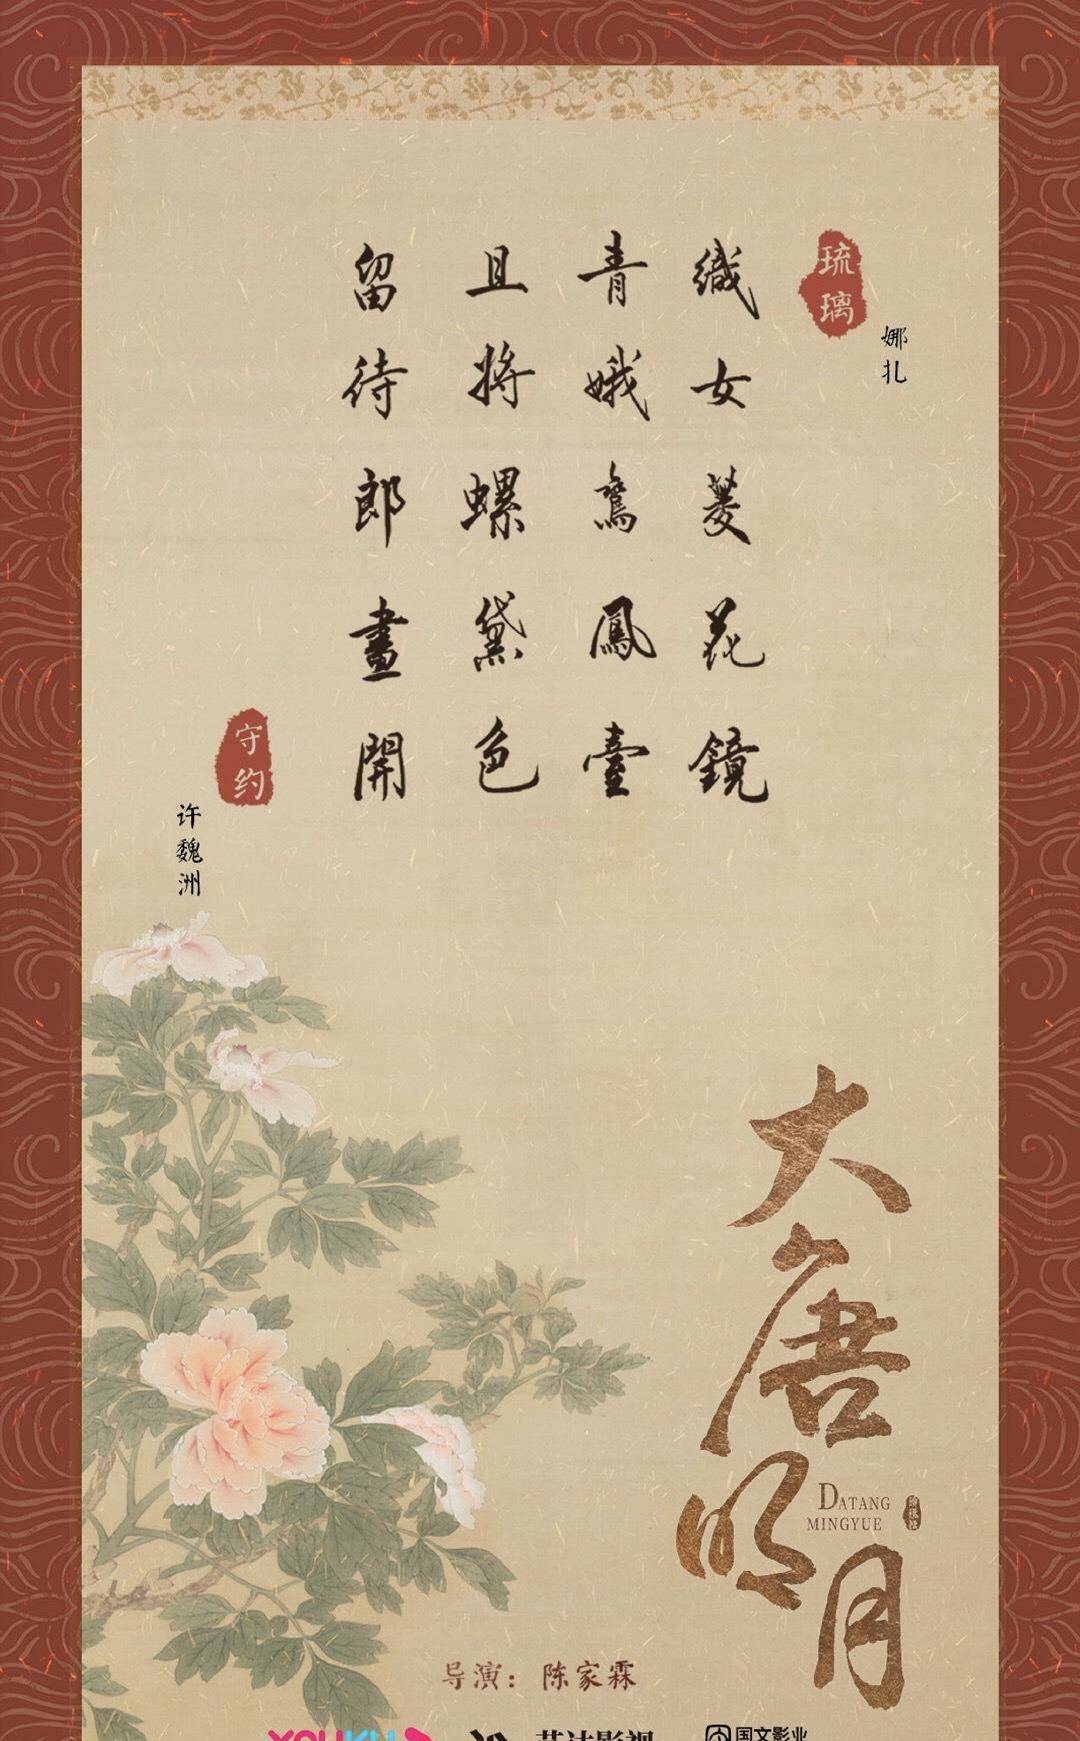 琉璃
娜扎
織女菱花鏡
青娥鸞鳳臺
且將螺黛色
留待郎畫開
守约
许魏洲
大唐明月
DATANG
MINGYUE
导演：陈家霖
YOUKU
艺达影视
国文影业